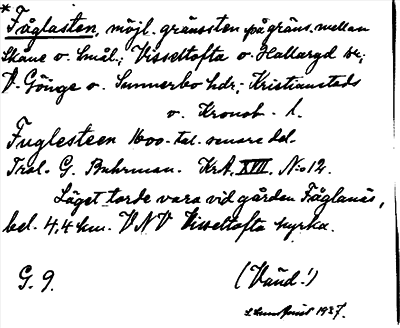 * Fåglasten, möjl. gränssten på gräns. mellan
Skåne o. Smål.; Visseltofta o. Hallaryd sr;
V. Göinge o. Sunnerbo hdr; Kristianstads
o. Kronob. l.
Fuglesteen 1600-tal. senare del.
Trol. G. Buhrman. KrA. XVII. N:o 12.
Läget torde vara vid gården Fåglanäs,
bel. 4,4 km. VNV Visseltofta kyrka.
G. 9.
(Vänd!)
1937.